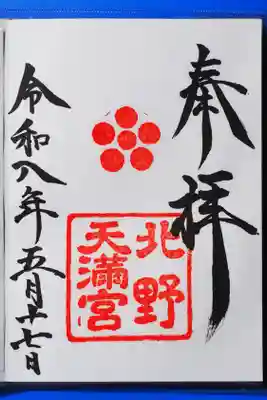 奉拝
北野
天満宮
令和八年五月十七日